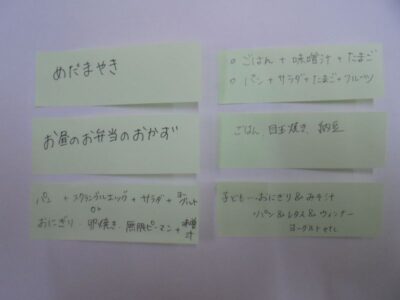 めだまやき
お昼のお弁当のおかず
パン + スクランブルエッグ + サラダ + ヨーグルト
or
おにぎり・卵焼き・無限ピーマン + 味噌汁
○ ごはん + 味噌汁 + たまご
○ パン + サラダ + たまご + フルーツ
ごはん、目玉焼き、納豆
子ども…おにぎり & みそ汁
パン & レタス & ウィンナー
ヨーグルト etc